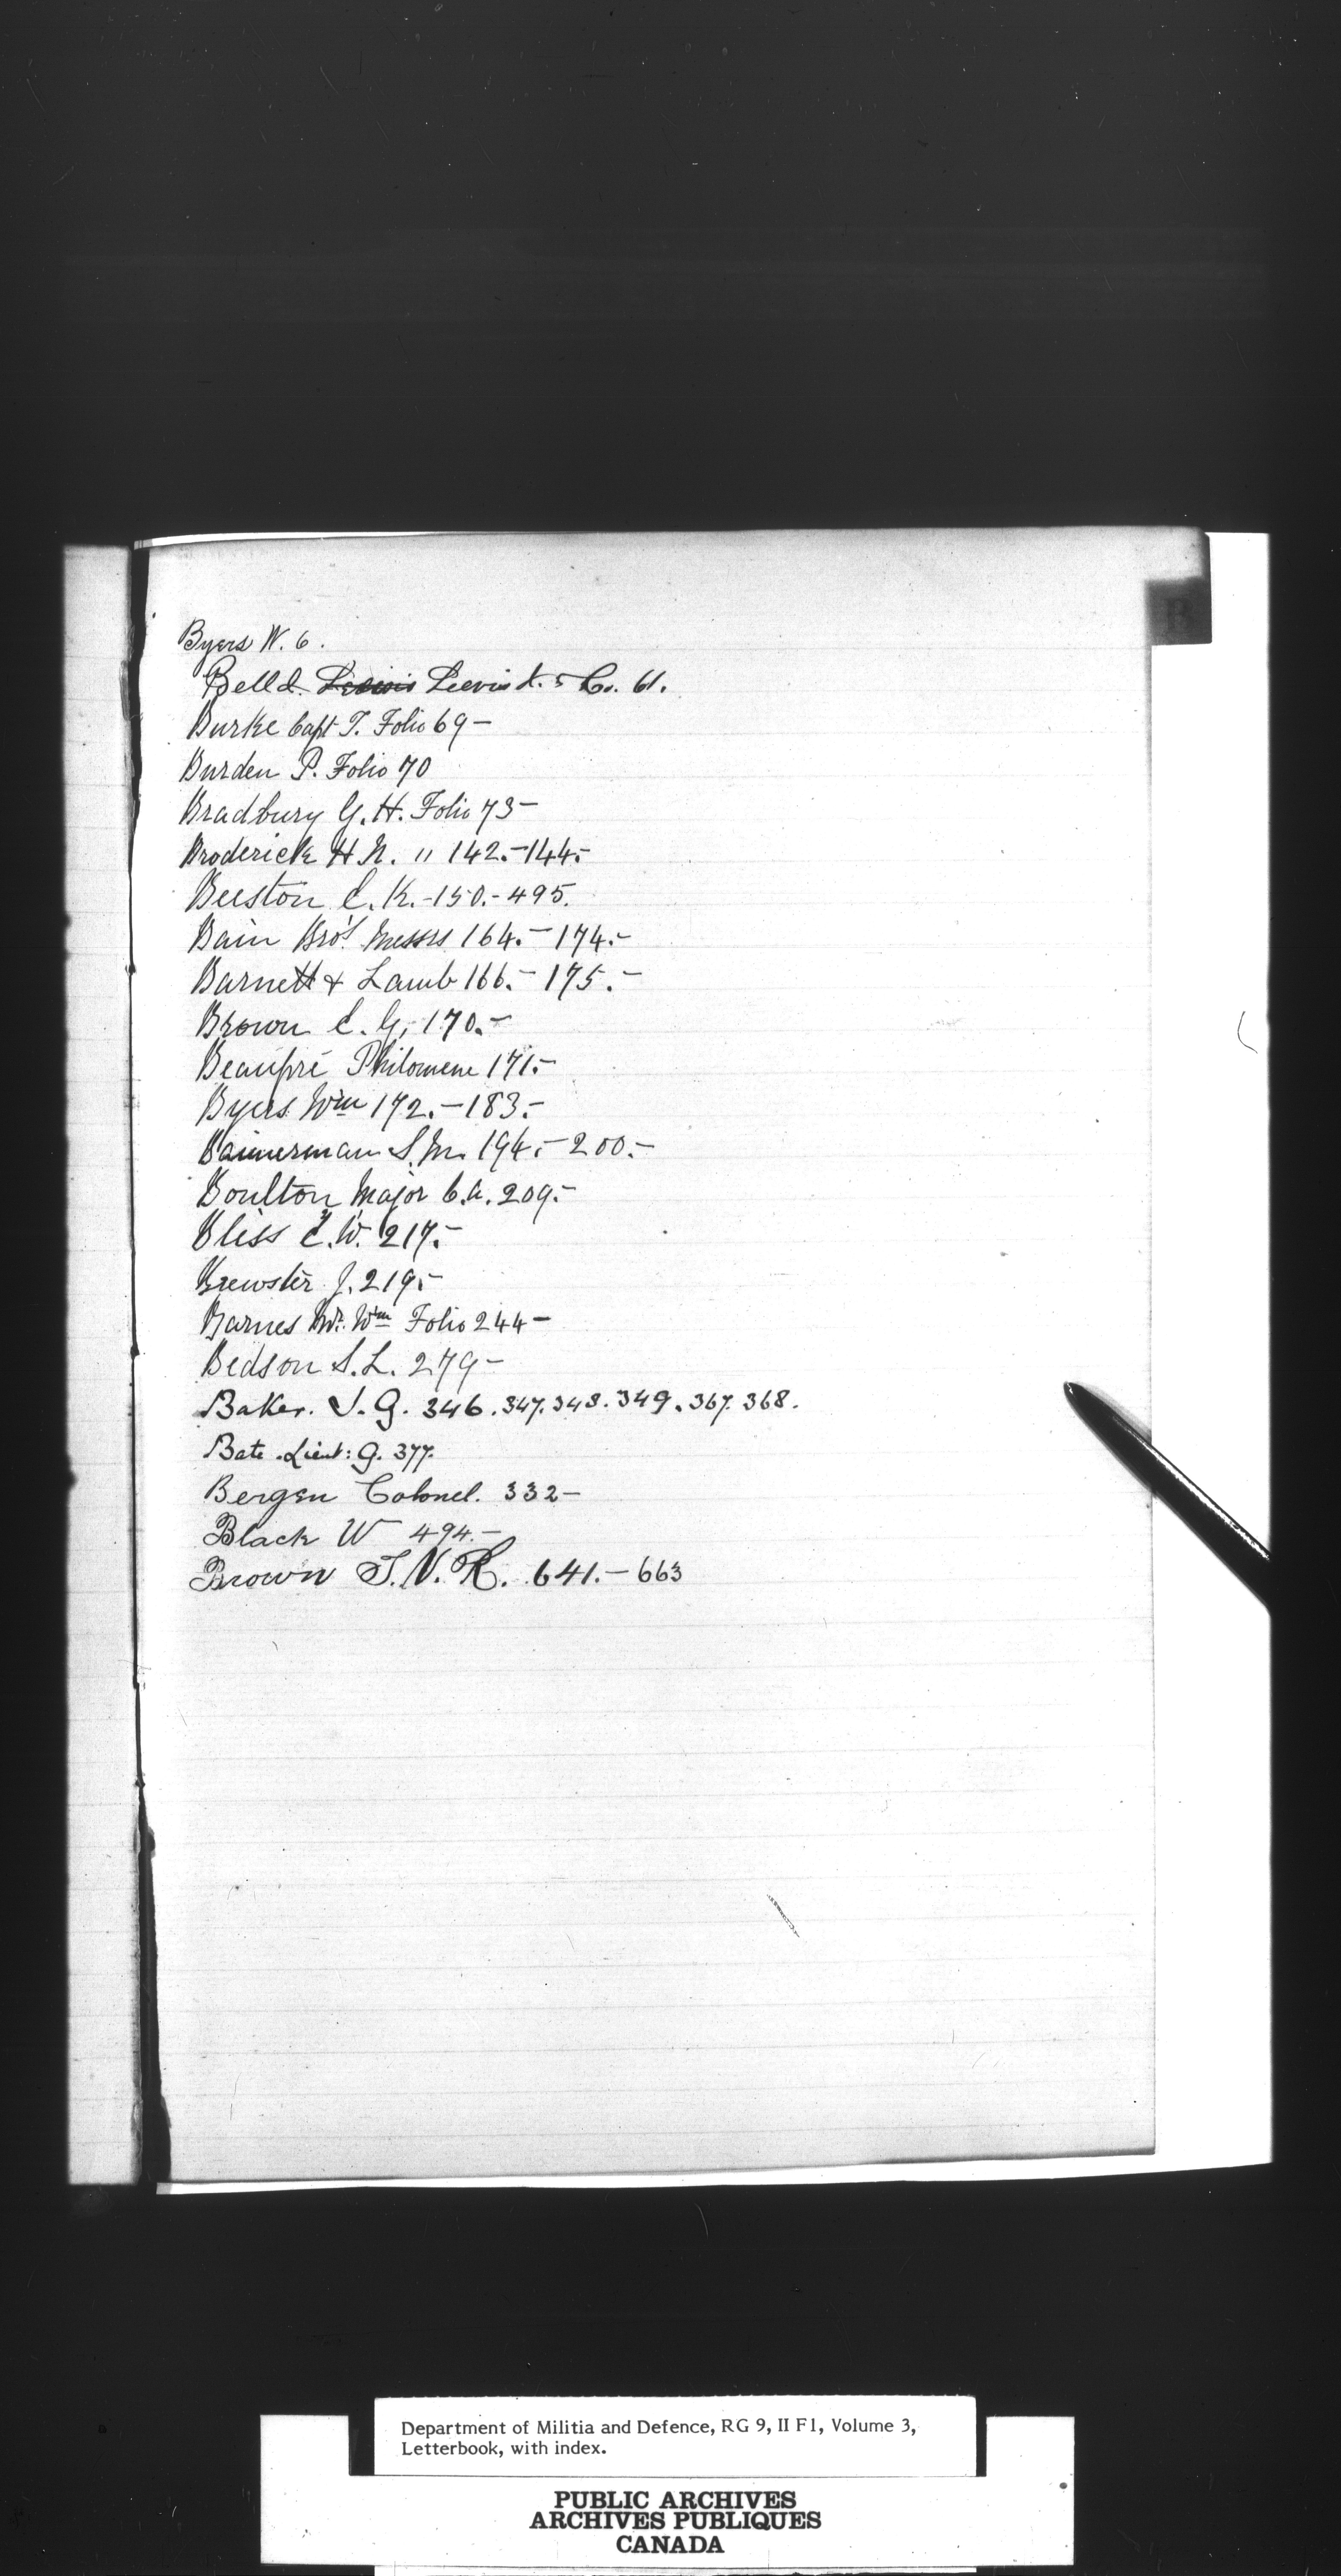 B
Byers W. 6.
Bell d. Lewis & Co. 61.
Burke Capt T. Folio 69-
Burden P. Folio 70
Bradbury G. H. Folio 73-
Broderick H. N. " 142.-144.-
Beeston C. K.-150.-495.
Bain Bro's Messrs 164.-174.-
Barnett & Lamb 166.-175.-
Brown C. G. 170.-
Beaupré Philomene 171.-
Byers Wm 172.-183.-
Bannerman S. M. 194.-200.-
Boulton Major C. A. 209.-
Bliss C. W. 217.-
Brewster J. 219.-
Barnes Mr. Wm Folio 244-
Bedson S. L. 279-
Baker. J. G. 346.347.348.349.367.368.
Bate. Lieut: G. 377.
Bergen Colonel. 332-
Black W 494.-
Brown T. V. R. 641.-663
Department of Militia and Defence, RG 9, II F1, Volume 3,
Letterbook, with index.
PUBLIC ARCHIVES
ARCHIVES PUBLIQUES
CANADA